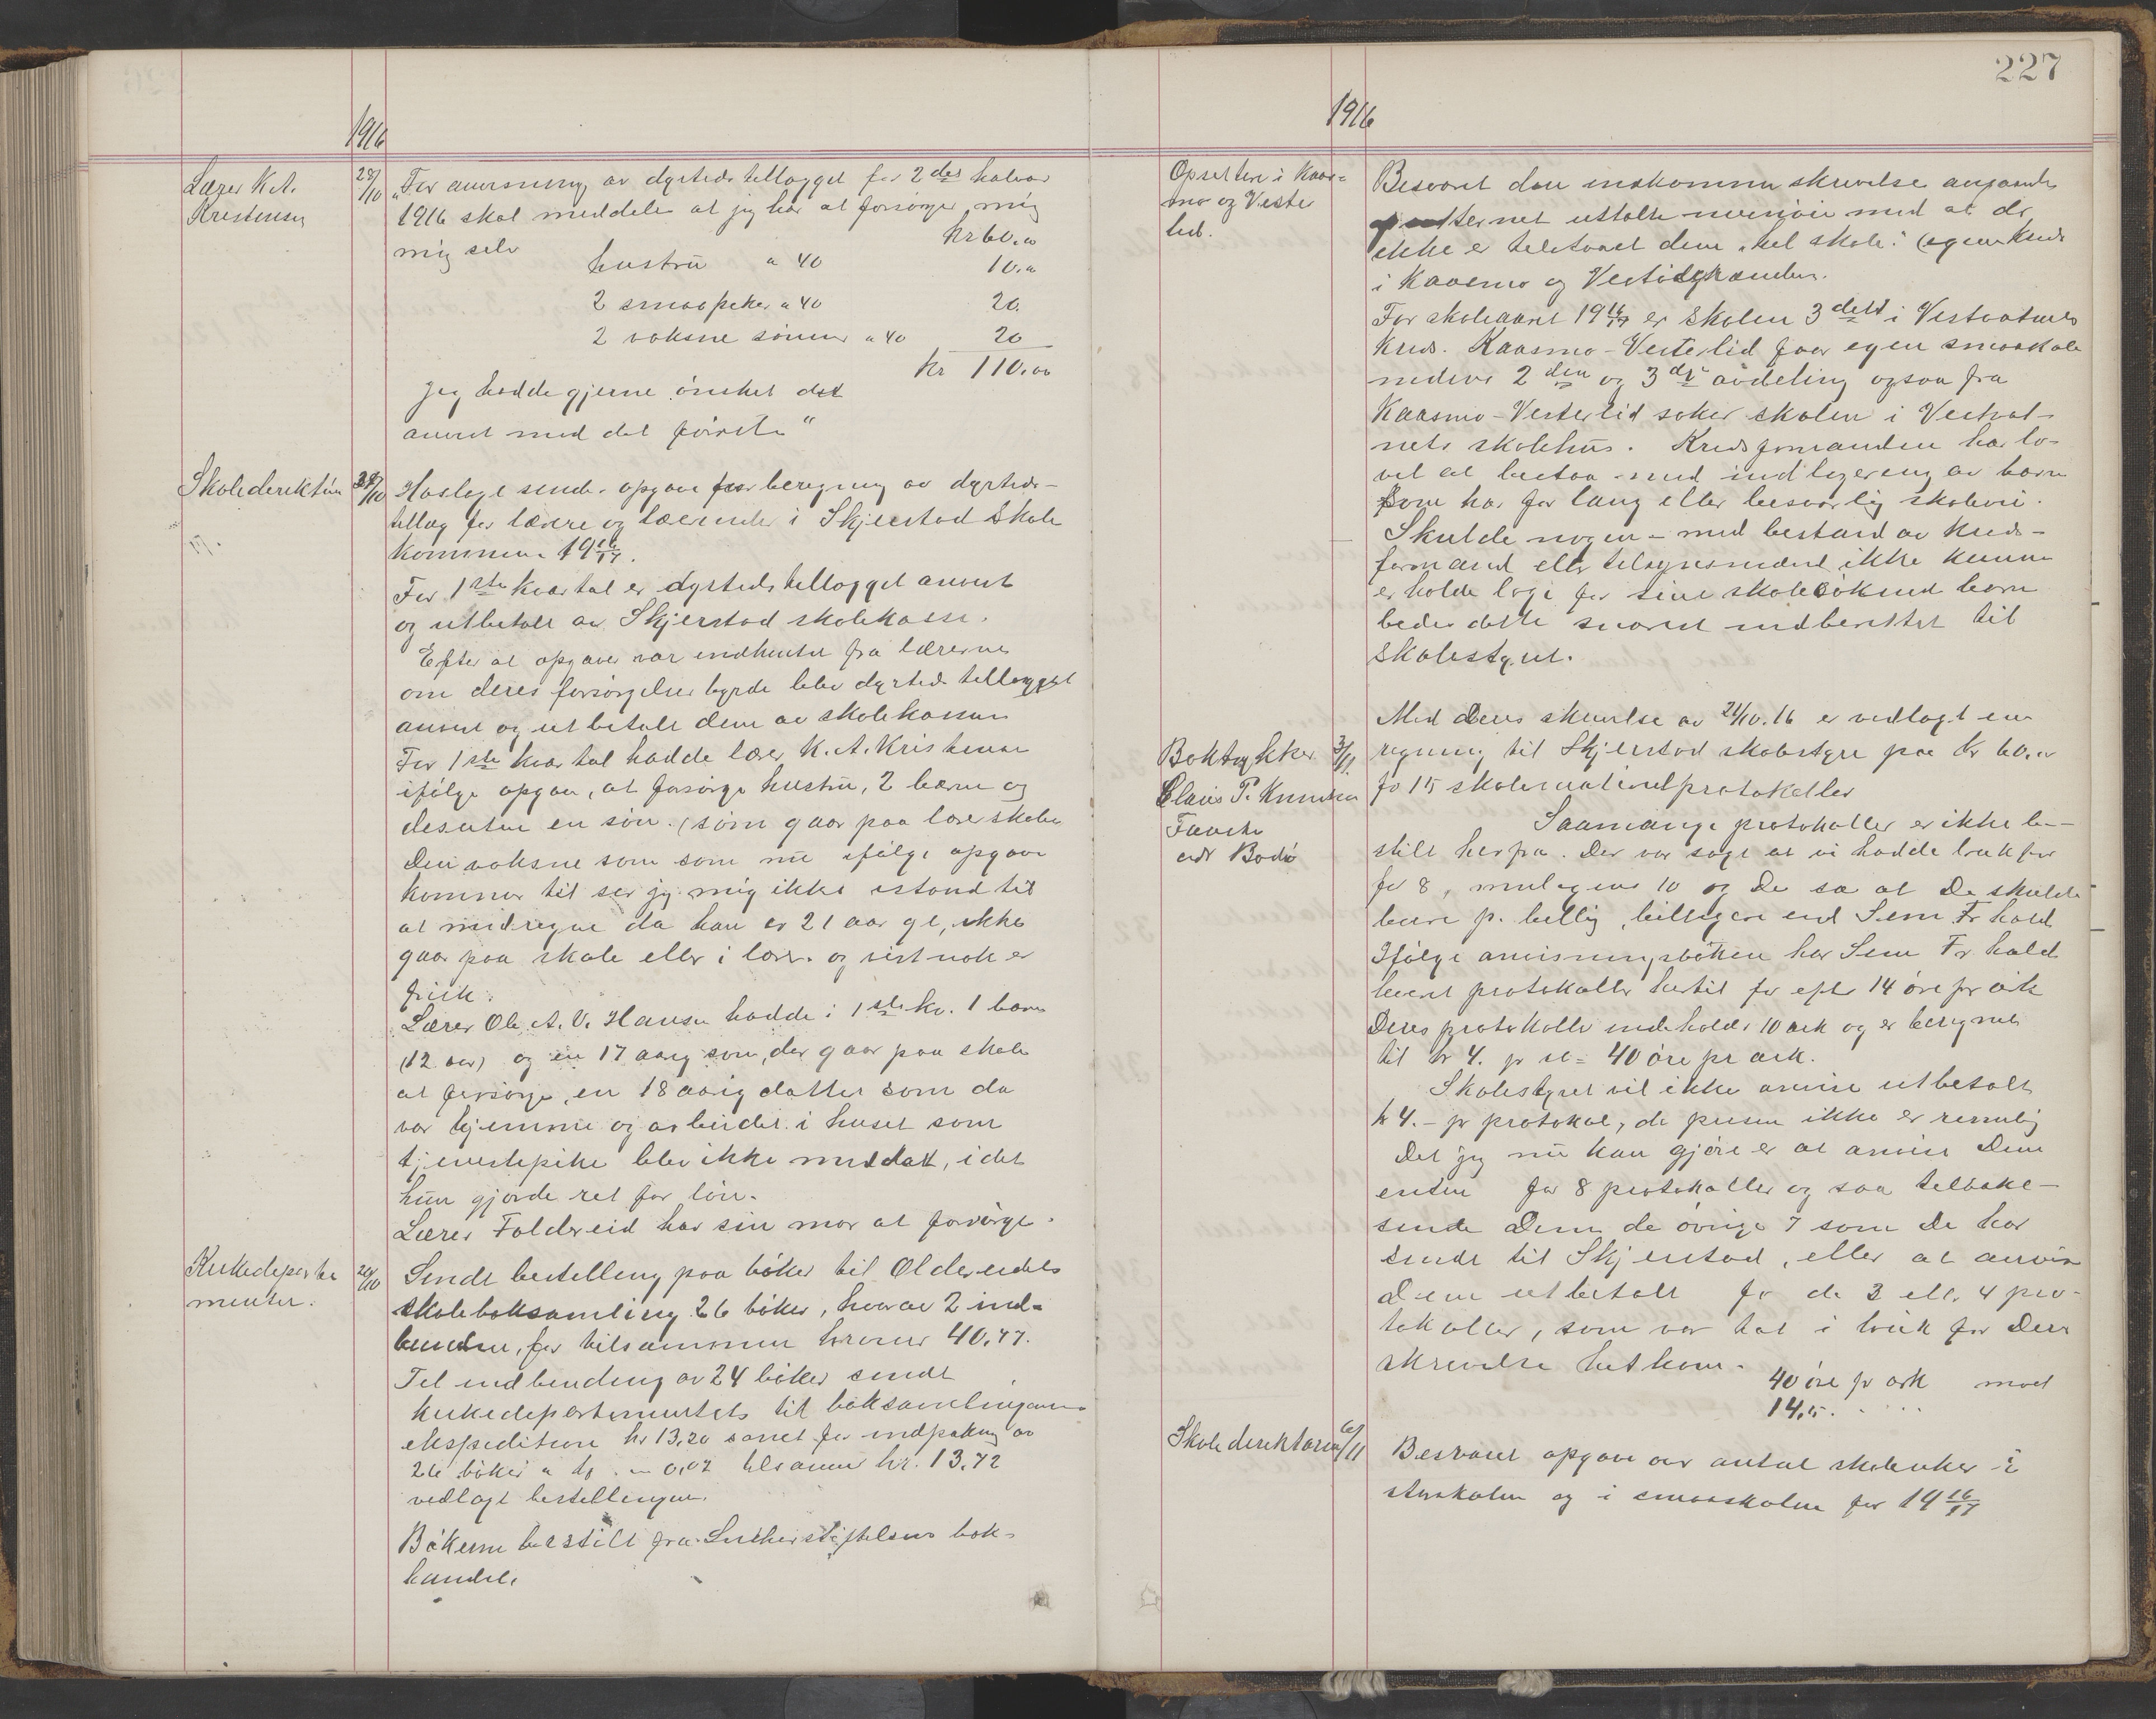 1916
Lærer K.A.
Kristensen
28/10 "For anvisning av dyrtidstillægget for 2det halvaar
1916 skal meddele at jeg har at forsørge mig
mig selv kr 60.00
hustru a 40 10.00
2 smaapiker a 40 20.
2 voksne sønner a 40 20
kr 110.00
Jeg hadde gjerne ønsket det
anvist med det første"
Skoledirektøren
28/10 Hoslagt sendes opgave for beregning av dyrtids-
tillæg for lærere og lærerinder i Skjerstad Skole
kommune 19 16/17.
For 1ste kvartal er dyrtidstillægget anvist
og utbetalt av Skjerstad skolekasse.
Efter at opgaver var indhentet fra lærerne
om deres forsørgelses byrde blev dyrtidstillægget
anvist og utbetalt dem av skolekassen
For 1ste kvartal hadde lærer K. A. Kristensen
ifølge opgave, at forsørge hustru, 2 barn og
desuten en søn. (som gaar paa lærerskole
Den voksne søn som nu ifølge opgave
kommer til ser jeg mig ikke istand til
at medregne da han er 21 aar gl, ikke
gaar paa skole eller i lære. og vistnok er
frisk.
Lærer Ole A. V. Hansen hadde i 1ste kv. 1 barn
(12 aar) og en 17 aarig søn, der gaar paa skole
at forsørge, en 18 aarig datter som da
var hjemme og arbeidet i huset som
tjenestepike blev ikke meddelt, idet
hun gjorde ret for løn.
Lærer Foldereid har sin mor at forsørge.
Kirkedeparte
mentet.
28/10 Sendt bestilling paa bøker til Oldereidets
skoleboksamling 26 bøker, hvorav 2 ind-
bundne, for tilsammen kroner 40,77.
Til indbinding av 24 bøker sendt
kirkedepartementets til boksamlingens
ekspedition kr 13,20 samt for indpakning av
26 bøker a 0,02 tilsammen kr. 13,72
vedlagt bestillingen.
Bøkerne bestilt fra Lutherstiftelsens bok-
handel.
227
1916
Opsitterne i Kaas-
mo og Vester
lid.
Besvaret den indkomne skrivelse angaaende
ikke er tilstaaet dem "hel skole" (egen kreds
i Kaasmo og Vesterlid
For skoleaaret 19 16/17 er Skolen 3delt i Vestvatnets
kreds. Kaasmo-Vesterlid faar egen smaaskole
medens 2den og 3die avdeling ogsaa fra
Kaasmo-Vesterlid søker skolen i Vestvat-
nets skolehus. Kredsformanden har lo-
vet at bistaa med indlogering av barn
som har for lang eller besværlig skolevei.
Skulde nogen - med bestand av kreds-
formand eller tilsynsmænd ikke kunne
erholde logi for sine skolesøkende barn
bedes dette snarest indberettet til
Skolestyret.
Boktrykker
Claus P. Knudsen
Fauske
adr Bodø
3/11. Med Deres skrivelse av 24/10.16 er vedlagt en
regning til Skjerstad skolestyre paa kr 60.00
for 15 skolematerielprotokoller
Saamange protokoller er ikke be-
stilt herfra. Der var sagt at vi hadde bruk for
for 8, muligens 10 og De sa at De skulde
levere p. billig, billigere end Sem Fr.hald
Ifølge anvisningsboken har Sem Fr.hald
levert protokoller hertil for efter 14 øre pr ark
Deres protokoller indeholder 10 ark og er beregnet
til kr 4. pr st = 40 øre pr ark.
Skolestyret vil ikke anvise utbetalt
kr 4.- pr protokol, da prisen ikke er rimelig
Det jeg nu kan gjøre er at anvise Dem
enten for 8 protokoller og saa tilbake-
sende Dem de øvrige 7 som De har
sendt til Skjerstad, eller at anvise
Dem utbetalt for de 3 ell. 4 pro-
tokoller, som var tat i bruk før Deres
skrivelse hitkom.
40 øre pr ark mot
14,5.
Skoledirektøren
6/11 Besvaret opgave over antal skoleuker i
storskolen og i smaaskolen for 19 16/17